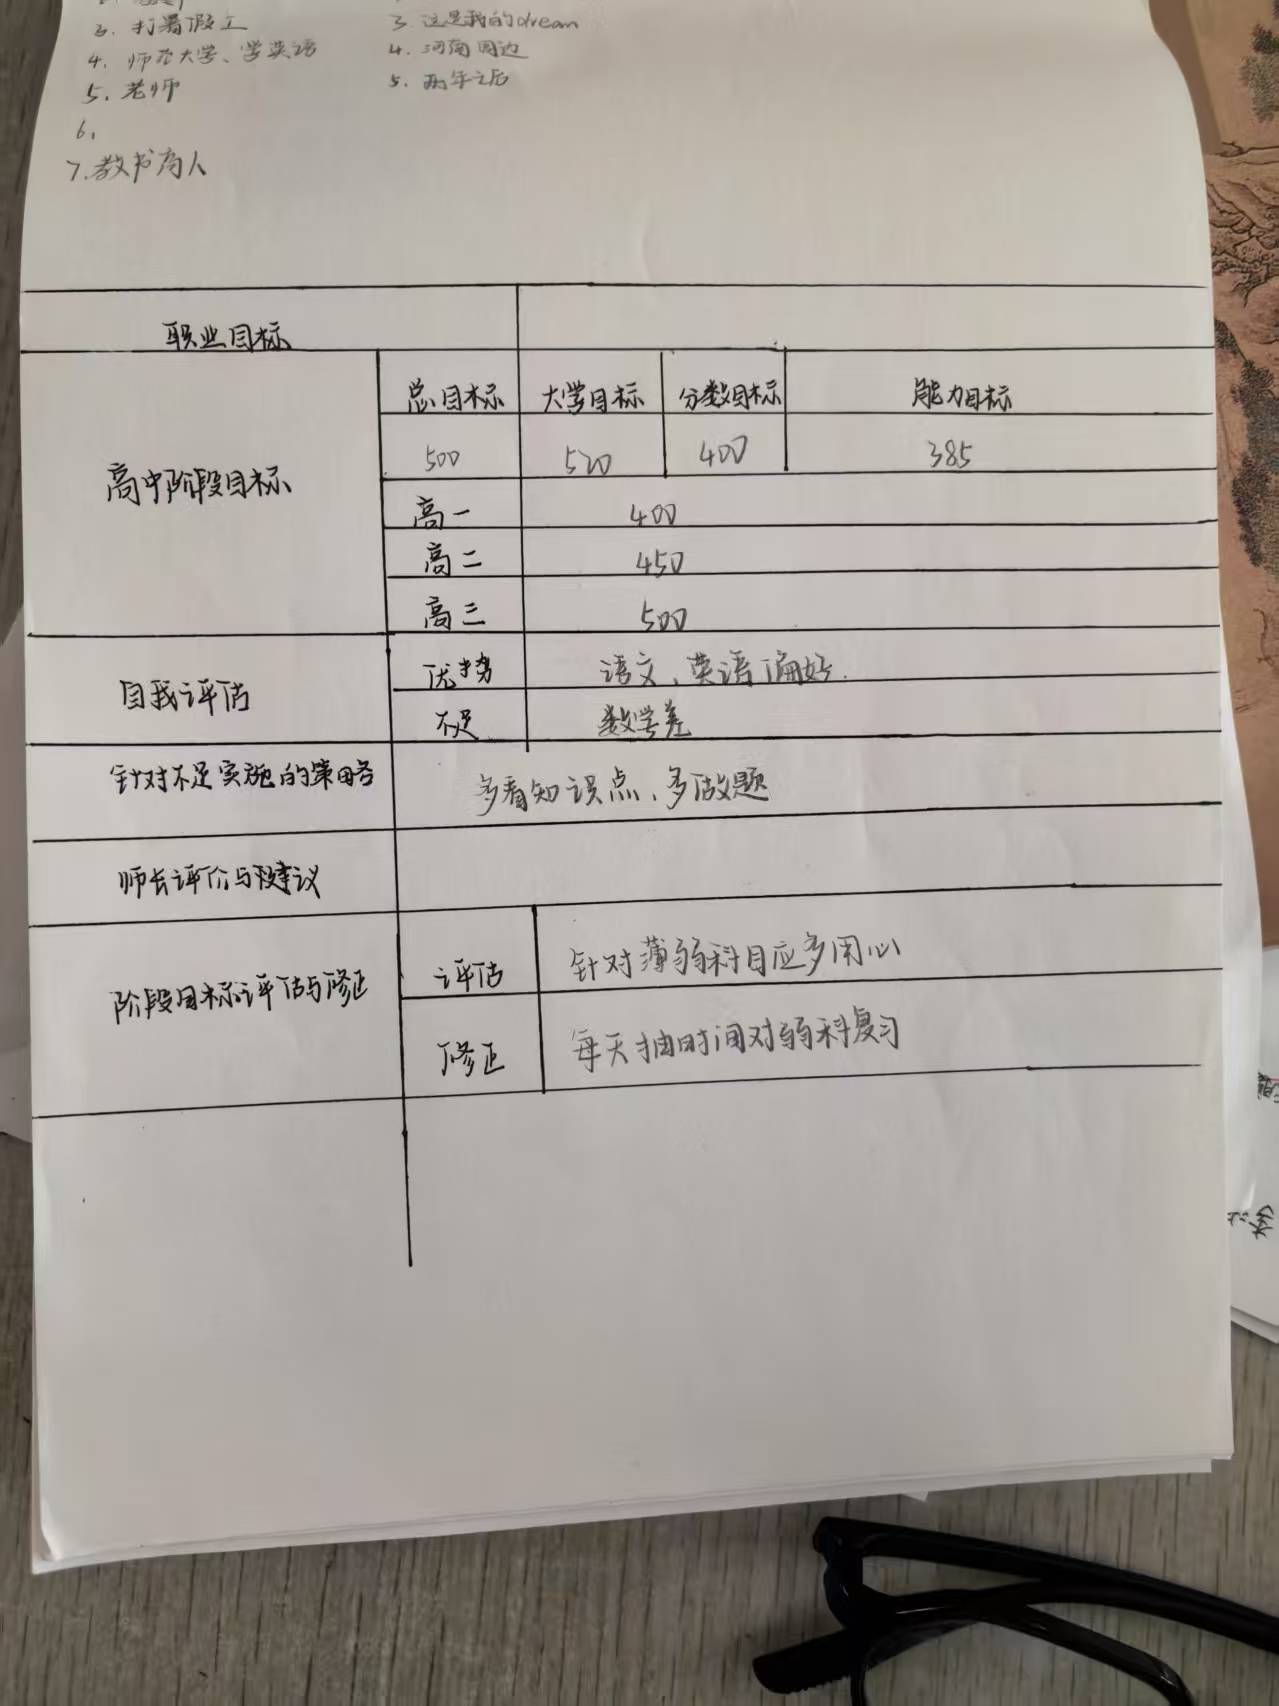 3. 打暑假工
3. 这是我的dream
4. 师范大学、学英语
4. 河南周边
5. 老师
5. 两年之后
6.
7. 教书育人
职业目标
高中阶段目标
总目标 大学目标 分数目标 能力目标
500 520 400 385
高一 400
高二 450
高三 500
自我评估
优势 语文、英语偏好.
不足 数学差
针对不足实施的策略 多看知识点、多做题
师长评价与建议
阶段目标评估与修正
评估 针对薄弱科目应多用心
修正 每天抽时间对弱科复习